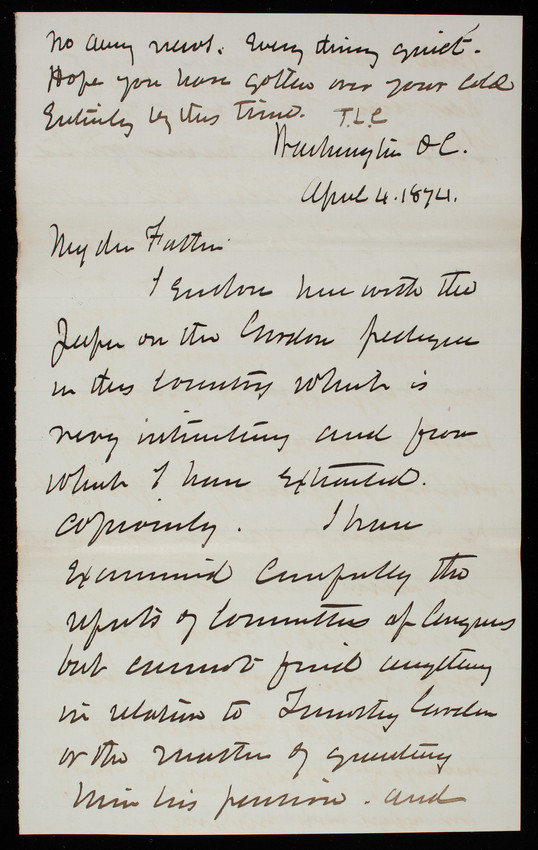 no army news. Every thing quiet.
Hope you have gotten over your cold
Entirely by this time. T.L.C
Washington D.C.
April 4. 1874.
My dear Father
I Enclose herewith the
paper on the Gordon pedigree
in this country which is
very interesting and from
which I have Extracted.
copiously. I have
Examined carefully the
reports of Committees of Congress
but cannot find anything
in relation to Timothy Gordon
or the matter of granting
him his pension. and